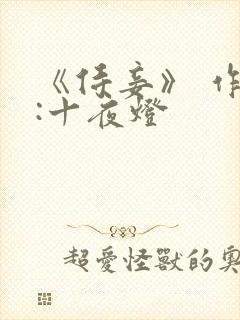 《侍妾》 作
:十夜燈
超愛怪獸的奧